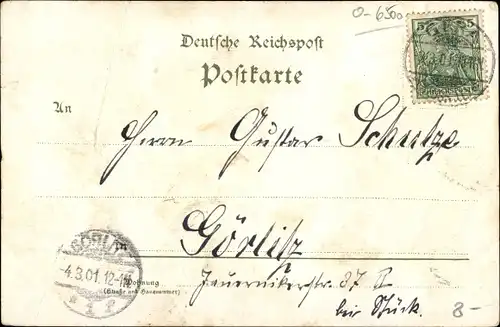 O-6500
Deutsche Reichspost
Postkarte
5 5
An
Herrn Gustav Schulze
in
Görlitz
GÖRLITZ
4.3.01. 12-1
* 1 *
Wohnung
(Straße und Hausnummer)
Jauernikerstr. 37 II
bei Stück.
8-